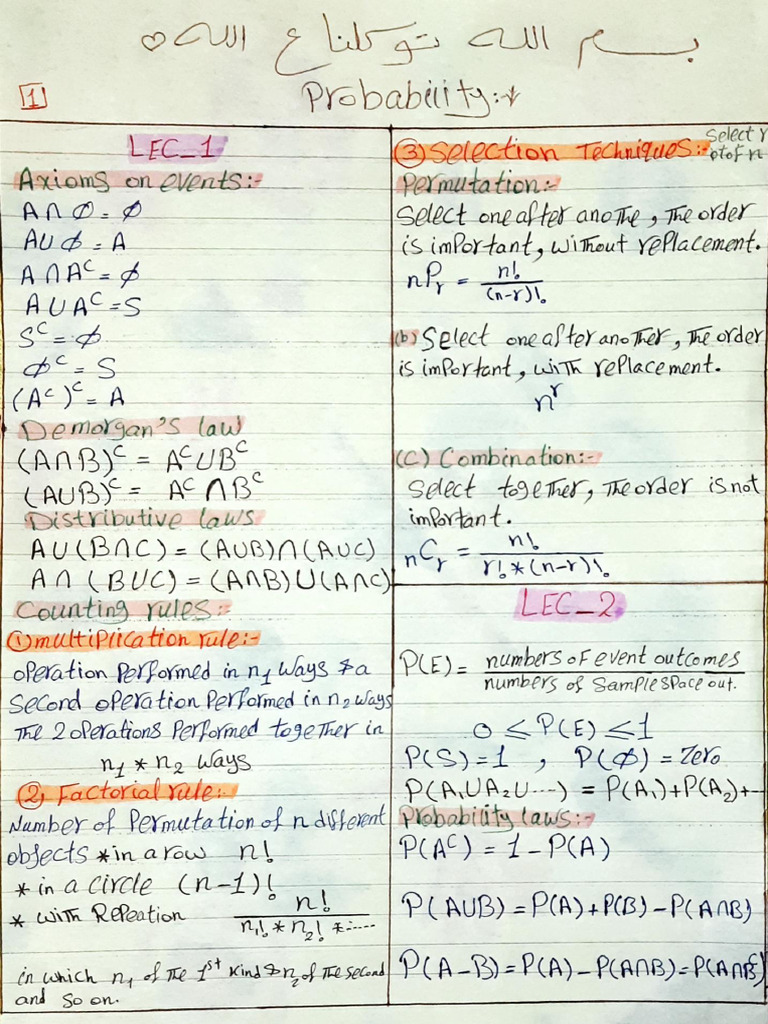 بسم الله توكلنا ع الله ♡
1
Probability:↓
LEC_1
Axioms on events:-
A∩Ø = Ø
A∪Ø = A
A∩Aᶜ = Ø
A∪Aᶜ = S
Sᶜ = Ø
Øᶜ = S
(Aᶜ)ᶜ = A
Demorgan's law
(A∩B)ᶜ = Aᶜ∪Bᶜ
(A∪B)ᶜ = Aᶜ∩Bᶜ
Distributive laws
A∪(B∩C) = (A∪B)∩(A∪C)
A∩(B∪C) = (A∩B)∪(A∩C)
Counting rules:-
① multiplication rule:-
operation performed in n₁ ways & a
second operation performed in n₂ ways
The 2 operations performed together in
n₁ * n₂ ways
② Factorial rule:-
Number of permutation of n different
objects * in a row n!
* in a circle (n-1)!
* with Repeation n! / n₁! * n₂! *.....
in which n₁ of the 1st kind & n₂ of the second
and so on.
③ Selection Techniques:- Select r
otof n
Permutation:-
Select one after anothe, The order
is important, without replacement.
nPr = n! / (n-r)!
(b) Select one after another, The order
is important, with replacement.
nʳ
(C) Combination:-
Select together, The order is not
important.
nCr = n! / r! * (n-r)!
LEC_2
P(E) = numbers of event outcomes / numbers of sample space out.
0 ≤ P(E) ≤ 1
P(S) = 1 , P(Ø) = Zero
P(A₁∪A₂∪....) = P(A₁)+P(A₂)+...
Probability laws:-
P(Aᶜ) = 1 - P(A)
P(A∪B) = P(A)+P(B) - P(A∩B)
P(A-B) = P(A) - P(A∩B) = P(A∩Bᶜ)